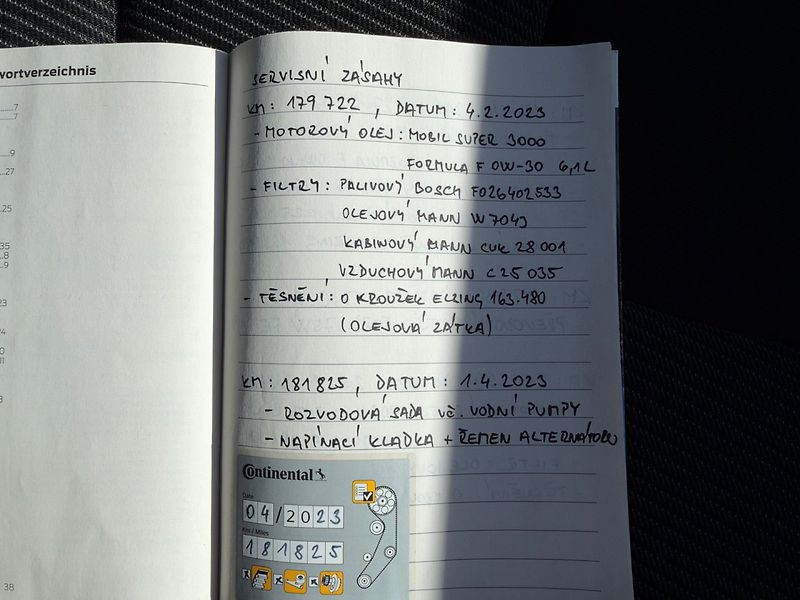 wortverzeichnis
7
7
9
27
25
35
8
9
23
38
SERVISNÍ ZÁSAHY
KM: 179 722, DATUM: 4.2.2023
- MOTOROVÝ OLEJ: MOBIL SUPER 3000
FORMULA F 0W-30 6,1L
- FILTRY: PALIVOVÝ BOSCH F026402533
OLEJOVÝ MANN W7043
KABINOVÝ MANN CUK 28 001
VZDUCHOVÝ MANN C25 035
- TĚSNĚNÍ: O KROUŽEK ELRING 163.480
(OLEJOVÁ ZÁTKA)
KM: 181825, DATUM: 1.4.2023
- ROZVODOVÁ SADA VČ. VODNÍ PUMPY
- NAPÍNACÍ KLADKA + ŘEMEN ALTERNÁTORU
Continental
Date
04/2023
Km / Miles
181825